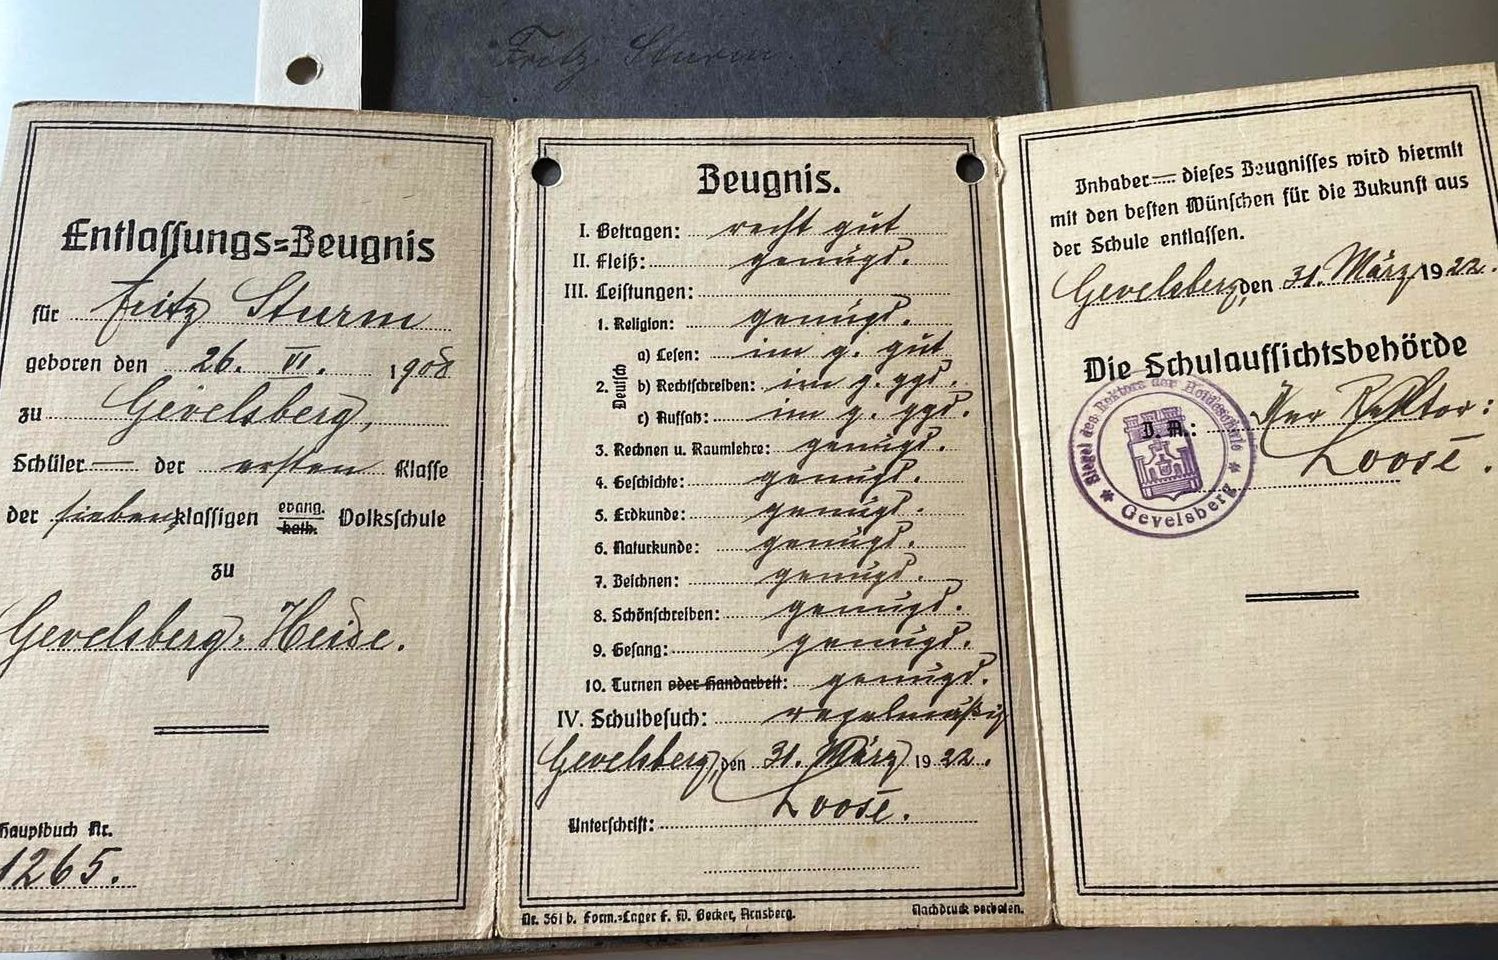 Fritz Sturm
Entlassungs-Zeugnis
für Fritz Sturm
geboren den 26. VI. 1908
zu Gevelsberg,
Schüler — der ersten Klasse
der siebenklassigen evang. kath. Volksschule
zu
Gevelsberg-Heide.
Hauptbuch Nr.
1265.
Zeugnis.
I. Betragen: recht gut
II. Fleiß: genügd.
III. Leistungen:
1. Religion: genügd.
2. Deutsch
a) Lesen: im g. gut
b) Rechtschreiben: im g. ggd.
c) Aufsatz: im g. ggd.
3. Rechnen u. Raumlehre: genügd.
4. Geschichte: genügd.
5. Erdkunde: genügd.
6. Naturkunde: genügd.
7. Zeichnen: genügd.
8. Schönschreiben: genügd.
9. Gesang: genügd.
10. Turnen oder Handarbeit: genügd.
IV. Schulbesuch: regelmäßig
Gevelsberg, den 31. März 1922.
Unterschrift: Loose.
Nr. 361 b. Form.-Lager F. W. Becker, Arnsberg. Nachdruck verboten.
Inhaber — dieses Zeugnisses wird hiermit
mit den besten Wünschen für die Zukunft aus
der Schule entlassen.
Gevelsberg, den 31. März 1922.
Die Schulaufsichtsbehörde
I. A.: Der Rektor:
Loose.
Siegel des Rektors der Heideschule
* Gevelsberg *